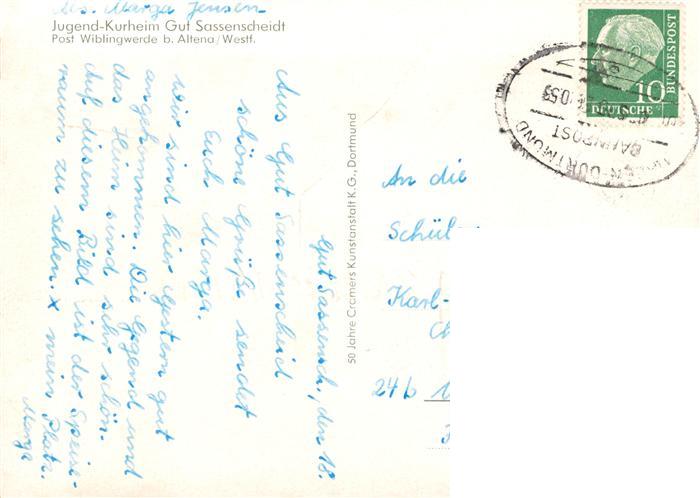 Abs. Marga Jensen
Jugend-Kurheim Gut Sassenscheidt
Post Wiblingwerde b. Altena/Westf.
Gut Sassensch., den 18.
Aus Gut Sassenscheid
schöne Grüße sendet
Euch Marga.
Wir sind hier gestern gut
angekommen. Die Gegend und
das Heim sind sehr schön.
Auf diesem Bild ist der Speise-
raum zu sehen. x mein Platz.
Marga
50 Jahre Cramers Kunstanstalt K.G., Dortmund
An die
Schül
Karl-
24b
10
DEUTSCHE
BUNDESPOST
DORTMUND
BAHNPOST